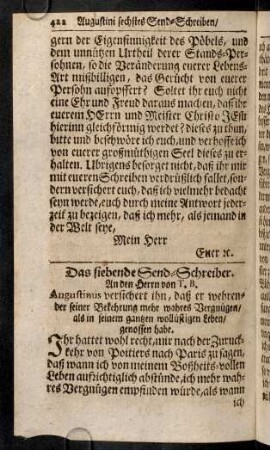 422 Augustini sechstes Send-Schreiben/
gern der Eigensinnigkeit des Pöbels, und
dem unnützen Urtheil derer Stands-Per-
sohnen, so die Veränderung euerer Lebens-
Art mißbilligen, das Gerücht von euerer
Persohn aufopffert? Soltet ihr euch nicht
eine Ehr und Freud daraus machen, daß ihr
euerem HErrn und Meister Christo JEsu
hierinn gleichförmig werdet? dieses zu thun,
bitte und beschwöre ich euch, und verhoffe ich
von euerer großmüthigen Seel dieses zu er-
halten. Ubrigens besorget nicht, daß ihr mir
mit eueren Schreiben verdrüßlich fallet, son-
dern versichert euch, daß ich vielmehr bedacht
seyn werde, euch durch meine Antwort jeder-
zeit zu bezeigen, daß ich mehr, als jemand in
der Welt seye,
Mein Herr
Euer ꝛc.
Das siebende Send-Schreiber.
An den Herrn von T. B.
Augustinus versichert ihn, daß er wehren-
der seiner Bekehrung mehr wahres Vergnügen/
als in seinem gantzen wollüstigen Leben/
genossen habe.
Ihr hattet wohl recht, mir nach der Zuruck-
kehr von Poitiers nach Paris zu sagen,
daß wann ich von meinem Boßheits-vollen
Leben aufrichtiglich abstünde, ich mehr wah-
res Vergnügen empfinden würde, als wann
ich